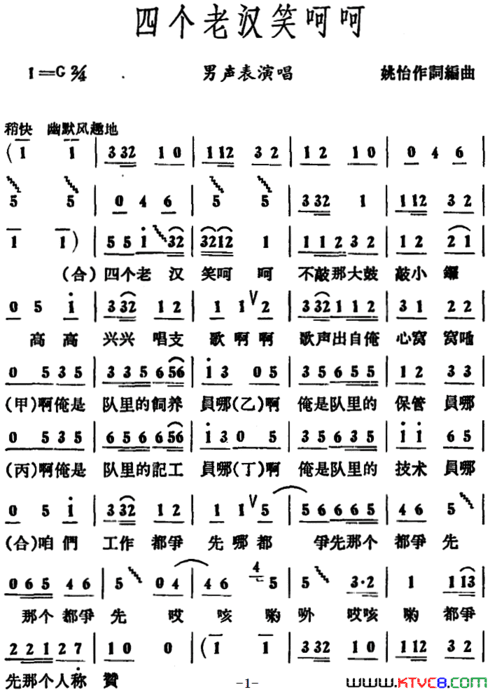 四个老汉笑呵呵
1=G 2/4 男声表演唱 姚怡作詞編曲
稍快 幽默风趣地
( 1 1 | 3 32 1 0 | 1 12 3 2 | 1 2 1 0 | 0 4 6 |
5 5 | 0 4 6 | 5 5 | 3 32 1 | 1 12 3 2 |
1 1 ) | 5 5 i 32 | 32 12 1 | 1 1 2 3 2 | 1 2 21 |
(合)四个老 汉 笑呵 呵 不敲那大鼓 敲小 鑼
0 5 i | 3 32 1 2 | 1 1 V 2 | 3 3 5 2 3 2 | 3 1 2 2 |
高 高 兴兴 唱支 歌啊 啊 歌声出自俺 心窝 窝哋
0 5 3 5 | 3 3 5 6 56 | i 3 0 5 | 3 5 6 3 5 | i i 3 3 |
(甲)啊俺是 队里的飼养 員哪(乙)啊 俺是队里的 保管 員哪
0 5 3 5 | 6 5 6 6 56 | i 3 0 5 | 6 5 6 3 5 | i i 6 5 |
(丙)啊俺是 队里的記工 員哪(丁)啊 俺是队里的 技术 員哪
0 5 i | 3 32 1 2 | 1 1 V 5 | 5 6 6 6 5 | 4 6 5 |
(合)咱 們 工作 都爭 先哪 都 爭先那个 都爭 先
0 6 5 4 6 | 5 0 4 | 4 6 4 5 | 5 3·2 | 1 1 13 |
那个 都爭 先 哎 咳 喲 哟 哎咳 喲 都爭
2 2 1 2 7 | 1 0 0 | ( 1 1 | 3 32 1 0 | 1 12 3 2 |
先那个人称 贊
-1-
www.KTVC8.com